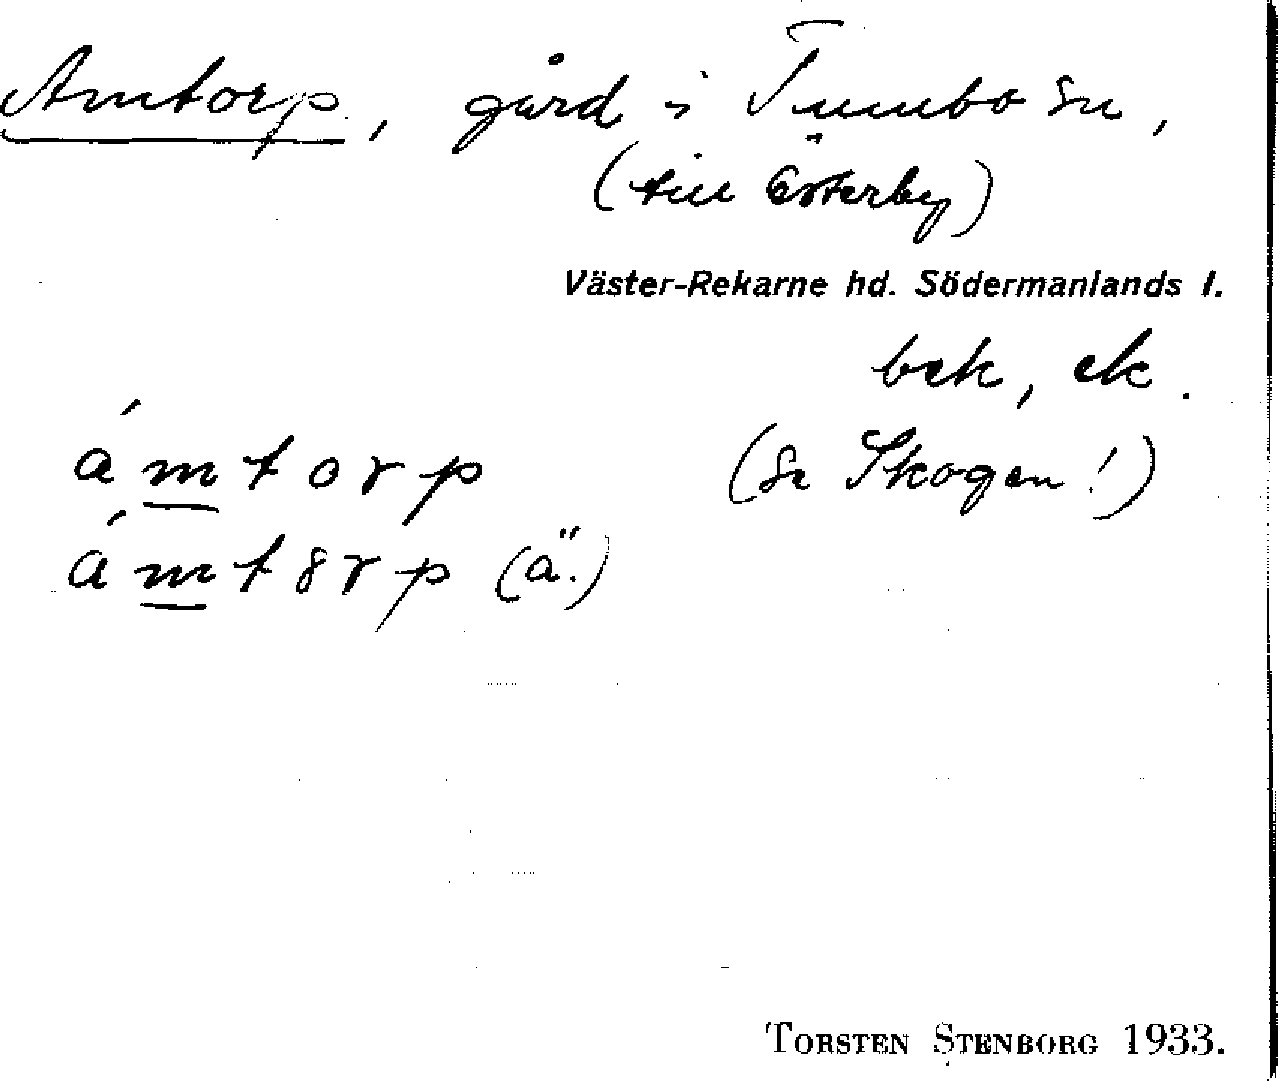 Amtorp, gård i Tumbo sn,
(till Österby)
Väster-Rekarne hd. Södermanlands l.
bek, ek.
ámtorp (se Skogen!)
ámt8rp (ä.)
TORSTEN STENBORG 1933.